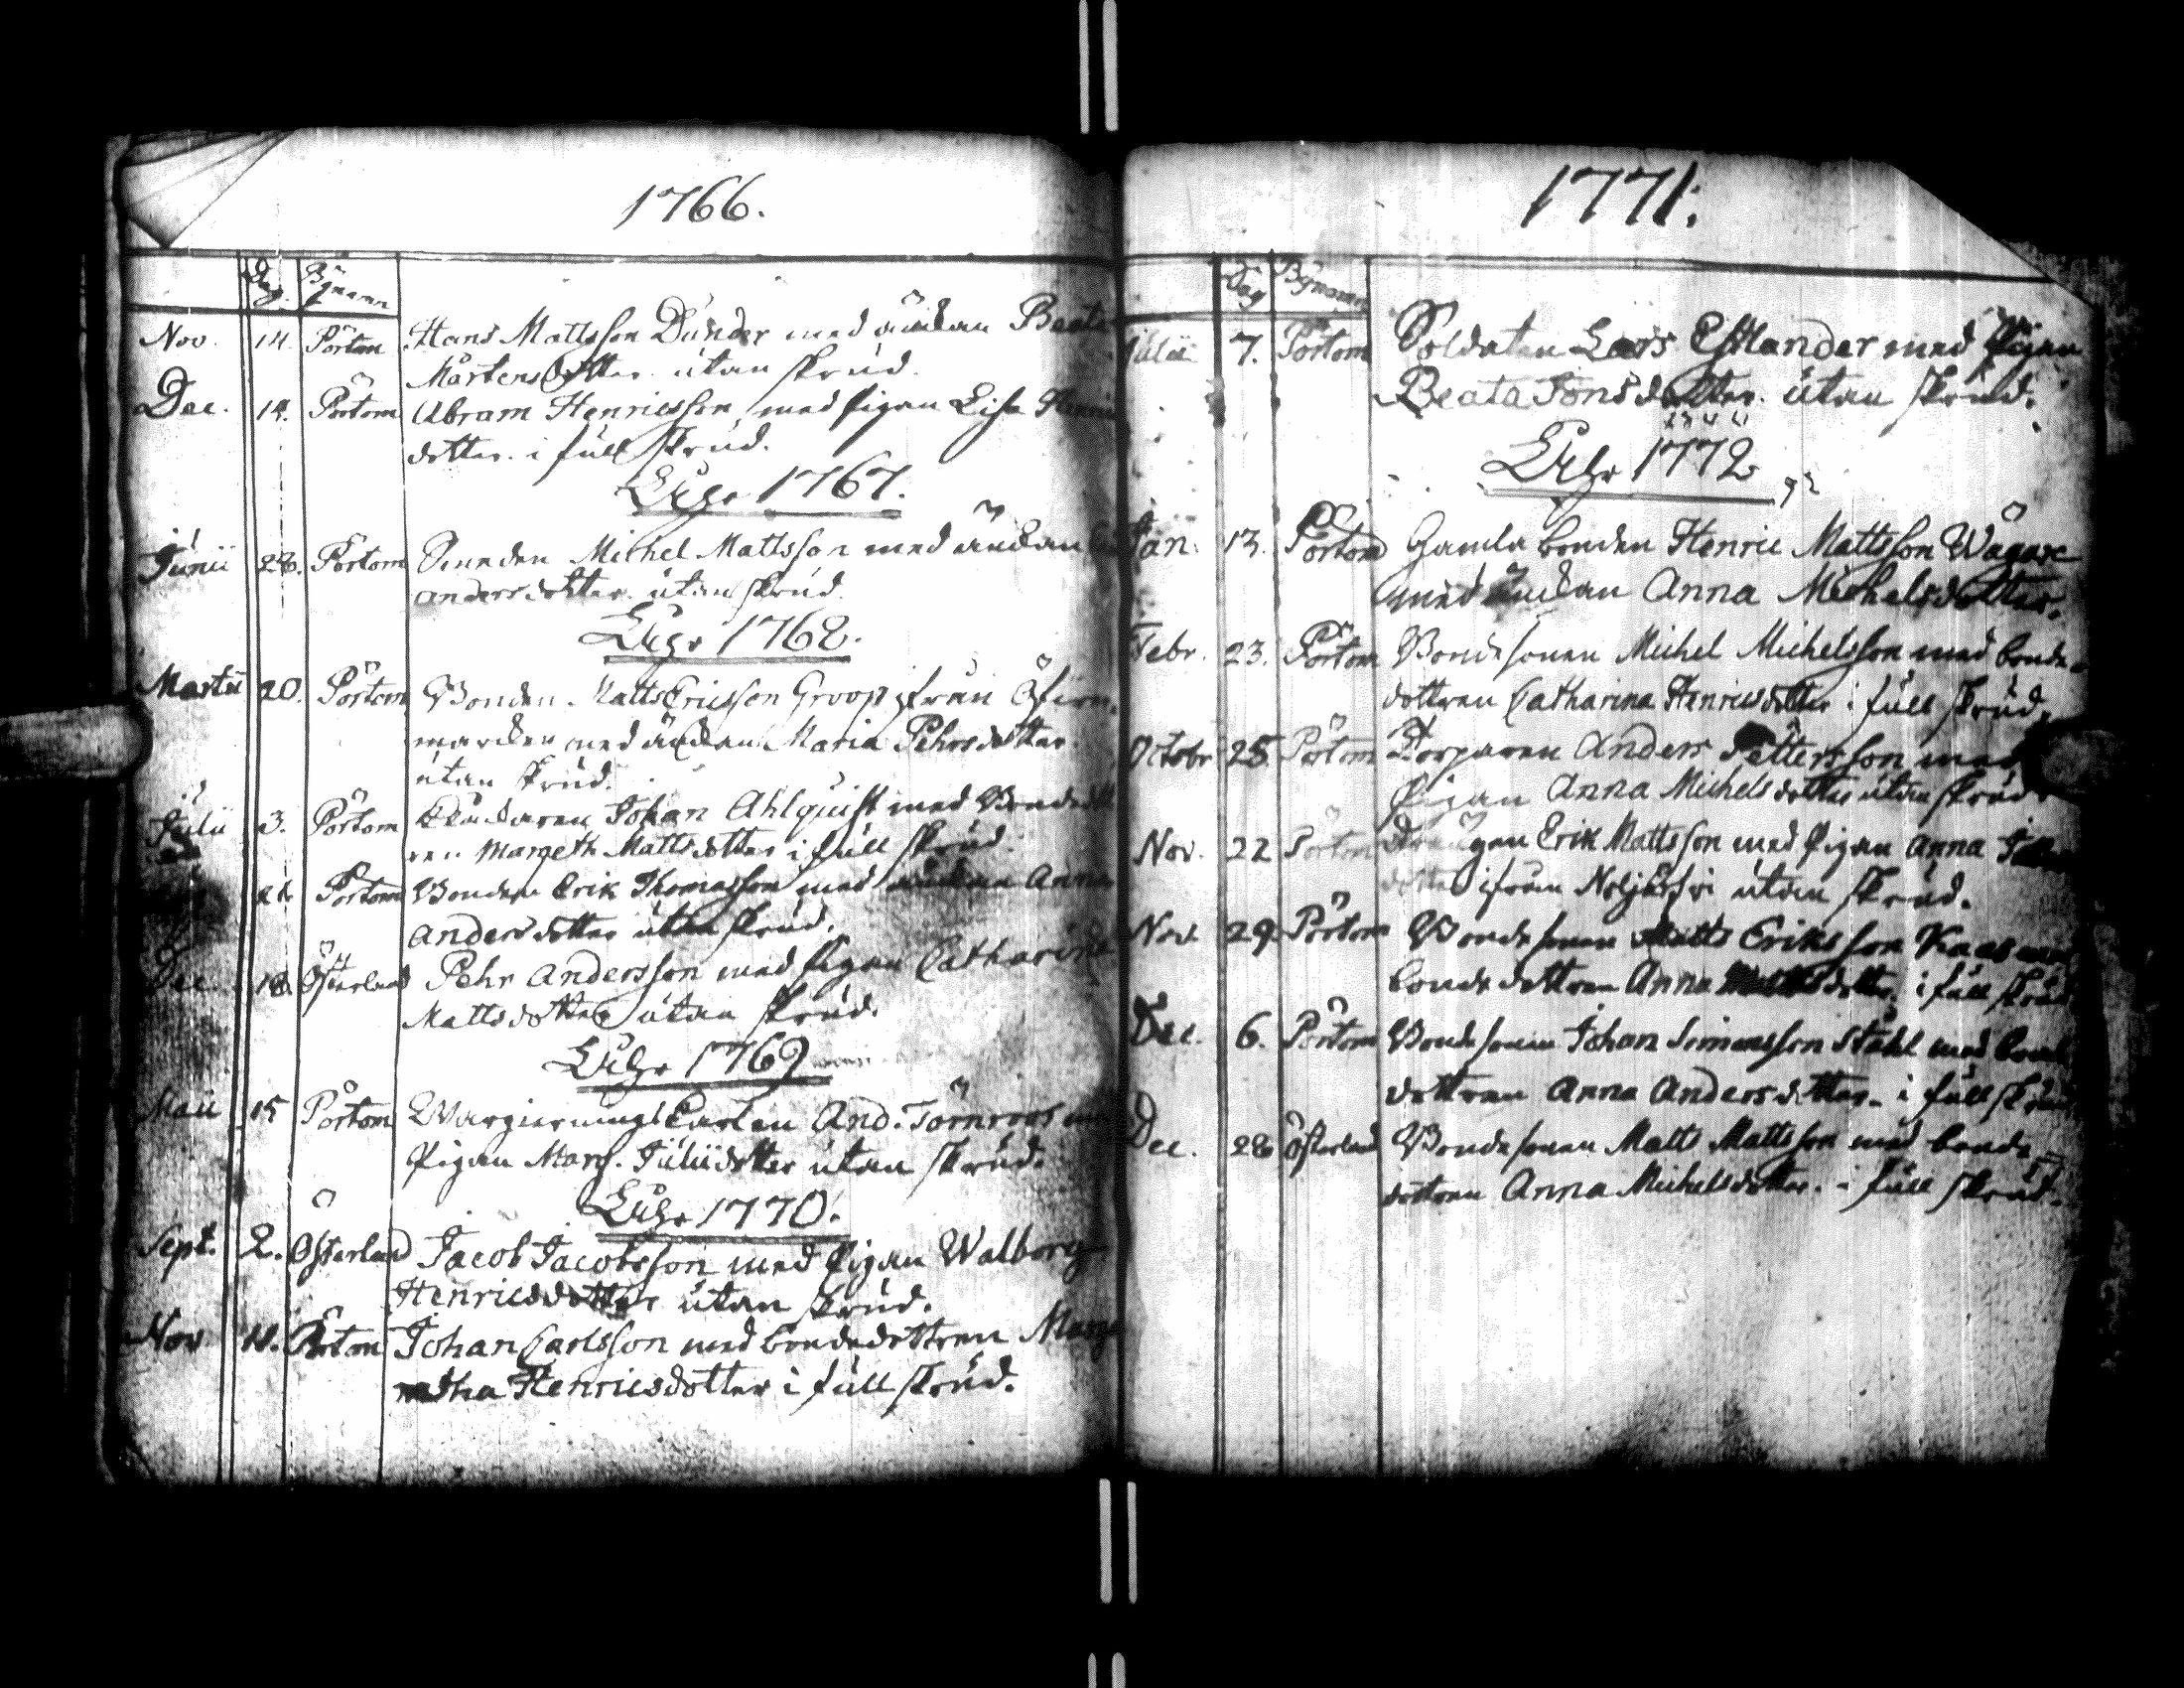 1766.
Dag. Bynamn
Nov. 14. Pörtom Hans Mattsson Dunder med änkan Beata
Mårtens dotter. utan skrud.
Dec. 14. Pörtom Abram Henricsson med pigan Lisa Henrics
dotter. i full skrud.
Åhr 1767.
Junii 28. Pörtom Bonden Michel Mattsson med änkan
Anders dotter. utan skrud.
Åhr 1768.
Martii 20. Pörtom Bonden Matts Ericsson Groop ifrån Öfver
marken med änkan Maria Pehrsdotter
utan skrud.
Julii 3. Pörtom Johan Ahlquist med Bondedott
ren Margeth Mattsdotter i full skrud.
21. Pörtom Bonden Erik Thomasson med änkan Anna
Andersdotter utan skrud.
Dec. 18. Österland Pehr Andersson med pigan Catharina
Mattsdotter utan skrud.
Åhr 1769
Maii 15 Pörtom Wargierings Karlen And. Törnroos
pigan Marg. Juliidotter utan skrud.
Åhr 1770.
Sept. 2. Österland Jacob Jacobsson med pigan Walborg
Henricsdotter utan skrud.
Nov 11. Pörtom Johan Carlsson med bondedottren Marga
retha Henricsdotter i full skrud.
1771.
Dag Bynamn
Julii 7. Pörtom Soldaten Lars Estlander med Pigan
Beata Jonsdotter. utan skrud.
Åhr 1772
Jan. 13. Pörtom Gamla bonden Henric Mattsson Wägare
med änkan Anna Michelsdotter.
Febr. 23. Pörtom Bondesonen Michel Michelsson med bonde
dottren Catharina Henricsdotter i full skrud.
Octobr 25 Pörtom Torparen Anders Pettersson med
Pigan Anna Michelsdotter utan skrud
Nov. 22 Pörtom Drängen Erik Mattsson med Pigan Anna
dotter ifrån utan skrud.
Nov. 29. Pörtom Bondesonen Matts Eriksson Kaas med
bondedottren Anna dotter. i full skrud
Dec. 6. Pörtom Bondesonen Johan Simonsson Ståhl med bonde
dottren Anna Andersdotter. i full skrud
Dec. 26 Österland Bondesonen Matts Mattsson med bonde
dottren Anna Michelsdotter. i full skrud.